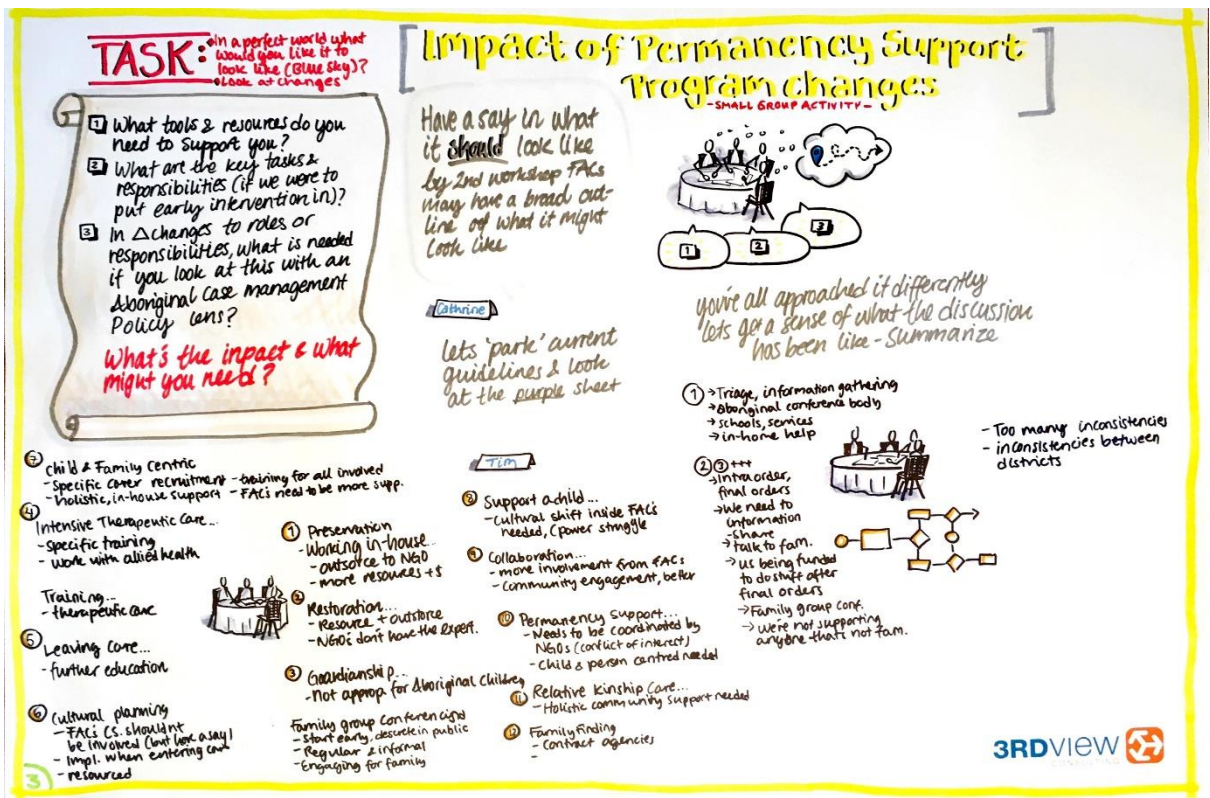 TASK:
•In a perfect world what
would you like it to
look like (Blue Sky)?
•Look at changes
1 What tools & resources do you
need to support you?
2 What are the key tasks &
responsibilities (if we were to
put early intervention in)?
3 In Δchanges to roles or
responsibilities, what is needed
if you look at this with an
Aboriginal case management
Policy lens?
What's the inpact & what
might you need?
Impact of Permanency Support
Program changes
-SMALL GROUP ACTIVITY-
Have a say in what
it should look like
by 2nd workshop FACs
may have a broad out-
line of what it might
look like
1
2
3
Cathrine
Lets 'park' current
guidelines & look
at the purple sheet
you've all approached it differently
lets get a sense of what the discussion
has been like - Summarize
1 →Triage, information gathering
→Aboriginal conference body
→schools, services
→in-home help
2 3 +++
→Intra order,
final orders
→We need to
information
-share
→talk to fam.
→us being funded
to do stuff after
final orders
→Family group conf.
→We're not supporting
anyone that's not fam.
- Too many inconsistencies
- inconsistencies between
districts
Child & Family Centric
-Specific carer recruitment -training for all involved
-holistic, in-house support - FACs need to be more supp.
4
Intensive Therapeutic Care...
-specific training
- work with allied health
Training...
-therapeutic care
5 Leaving Care...
- further education
6 Cultural planning
-FACs CS. shouldnt
be involved (but have a say)
-Impl. when entering care
- resourced
3
1 Preservation
-Working in-house...
-outsorce to NGO
- more resources +$
2 Restoration...
-Resource + outsorce
-NGOs don't have the expert.
3 Guardianship...
-Not approp. for Aboriginal children
Family group conferencing
-Start early, descrete in public
-Regular & informal
-Engaging for family
Tim
8 Support a child...
-cultural shift inside FACs
needed, (power struggle
9 Collaboration...
- more involvement from FACs
-Community engagement, better
10 Permanency Support...
-Needs to be coordinated by
NGOs (conflict of interest)
-Child & person centred needed
11 Relative Kinship Care...
-Holistic community support needed
12 Family finding
- Contract agencies
-
3RDVIEW
CONSULTING